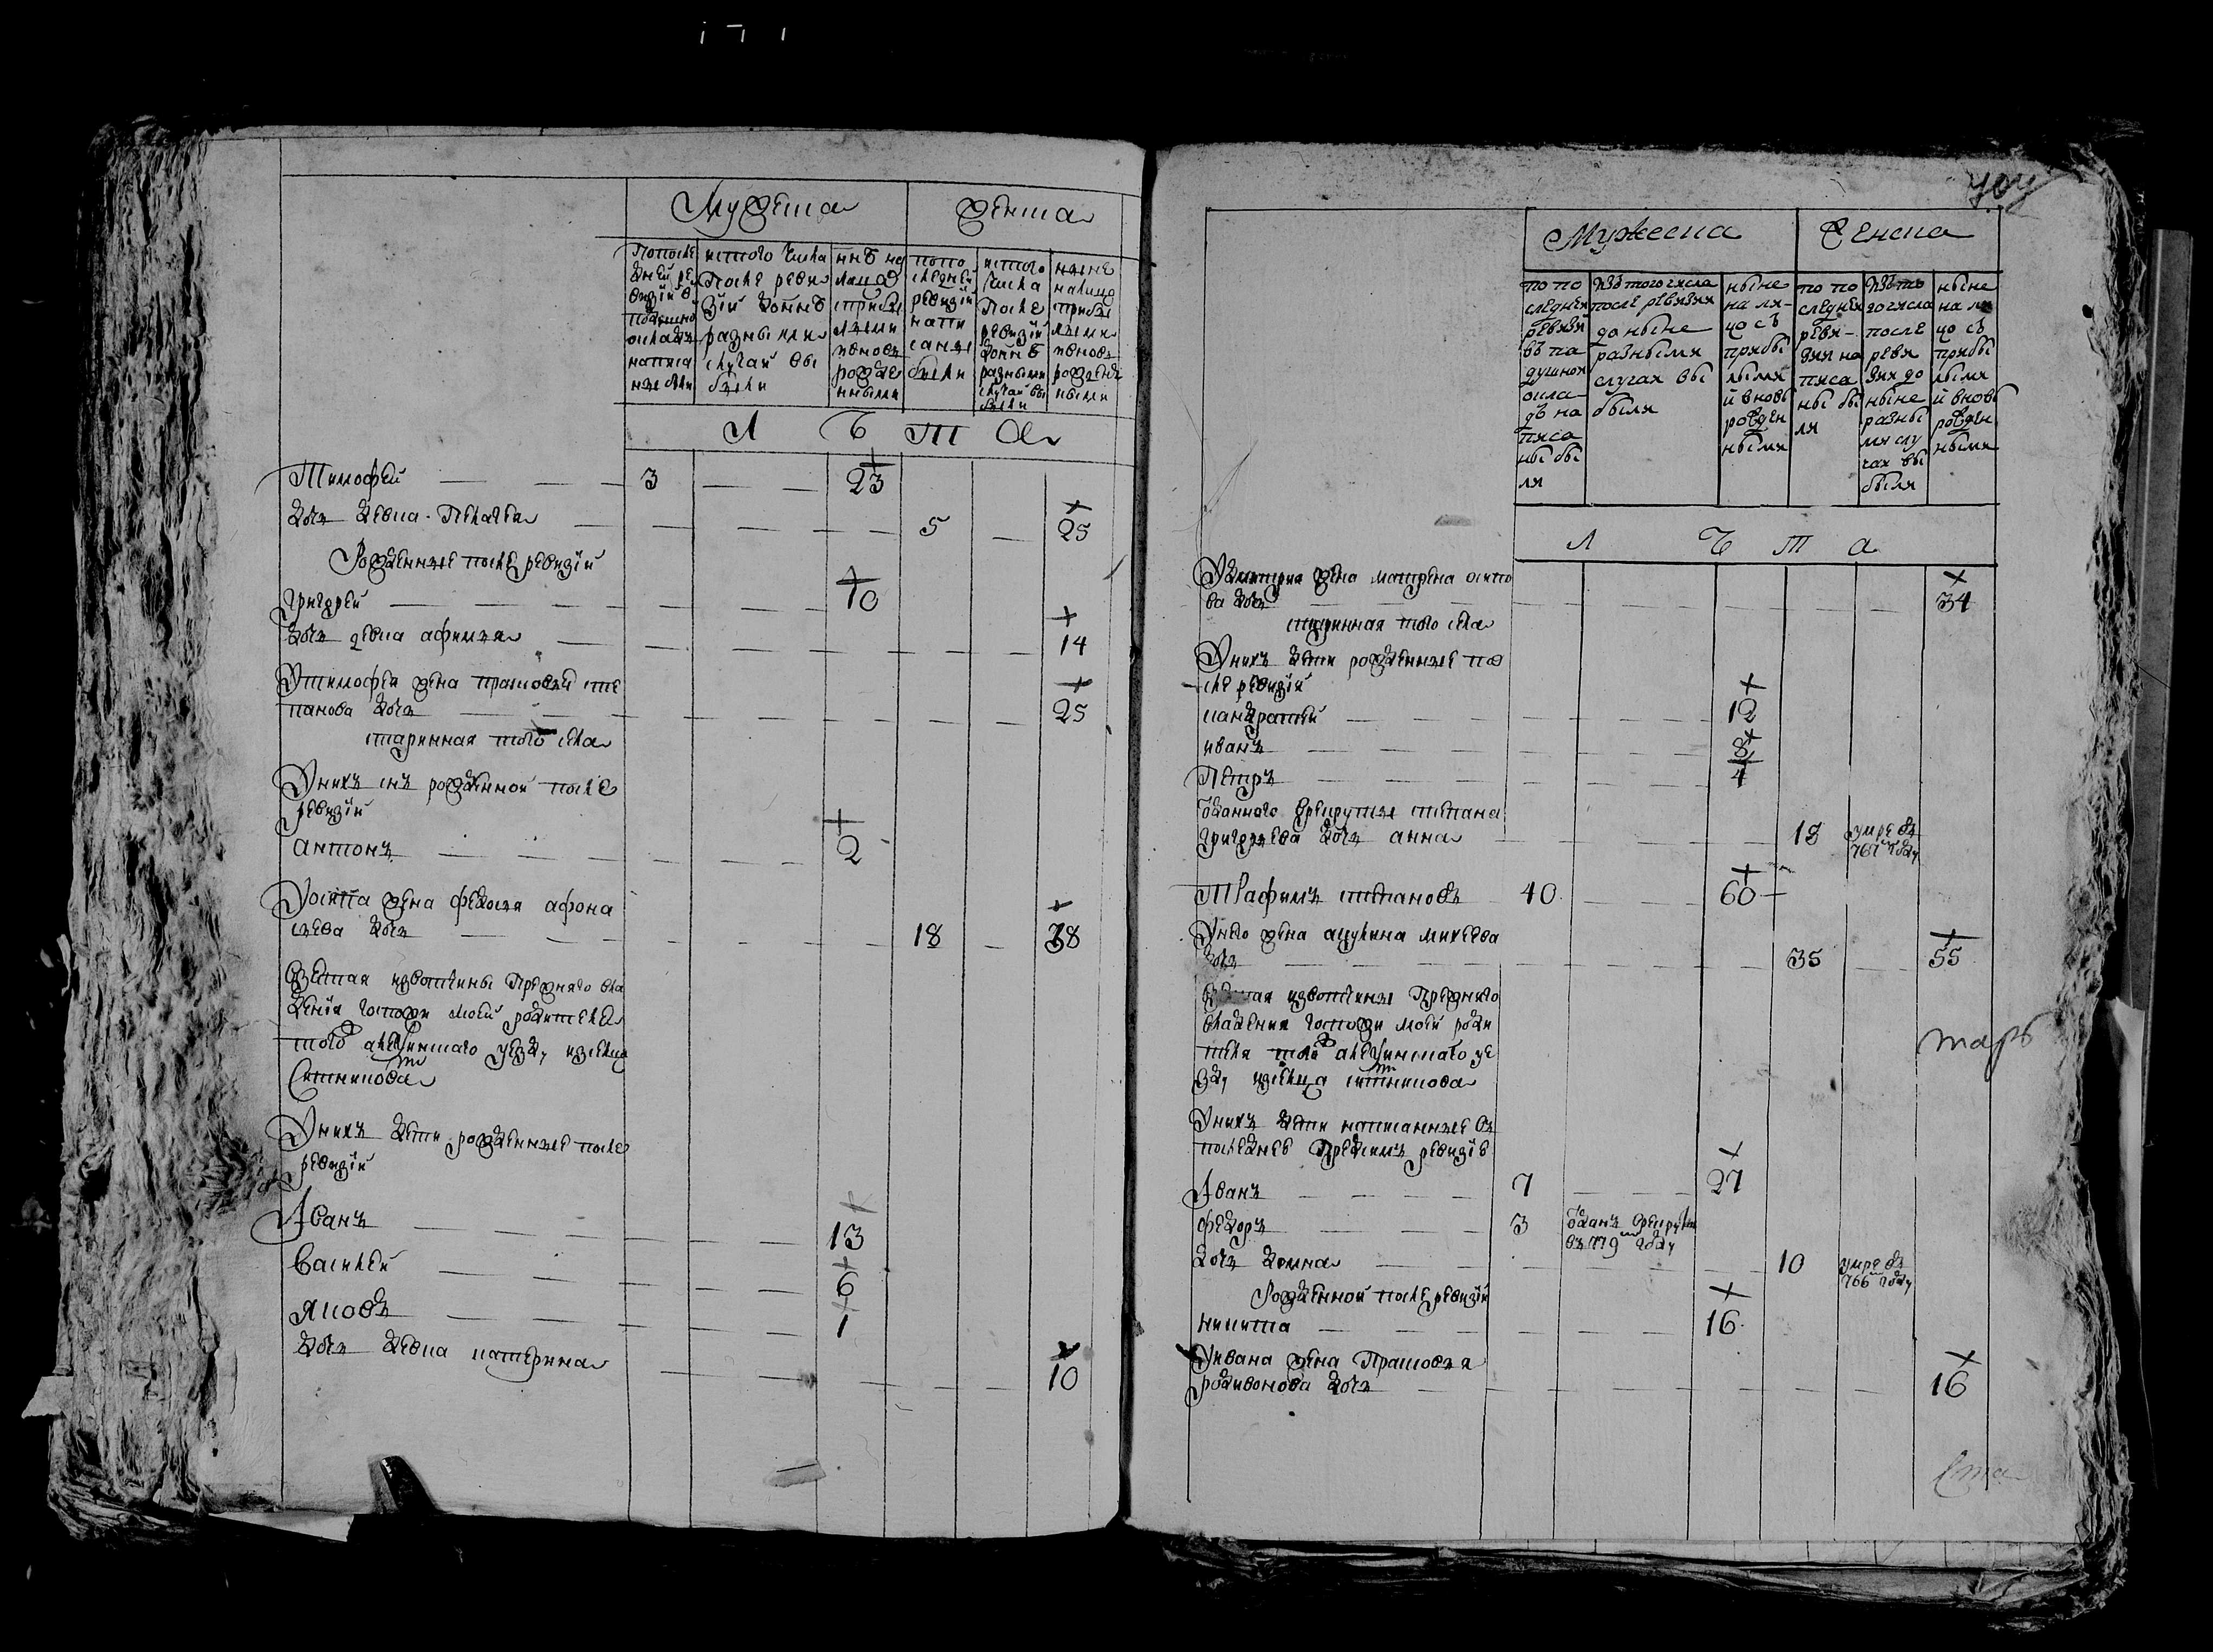 Мужеска женска
По после
дней ре
визiи в
подушно
окладъ
написа
ны были
ис того числа
после реви
зiи до ннѣ
разными
случаи вы
были
ннѣ на
лицо с
прибы
лыми
и вновь
рожде
нными
по по
следней
ревизiи
напи
саны
были
ис того
числа
после
ревизiи
до ннѣ
разными
случаи вы
были
ныне
налицо
с прибы
лыми
и вновь
рожден
ными
Л Ѣ Т А
Тимофей 3 23
дочь девка Пелагея 5 25
Рожденные после ревизiи
Григорей 10
дочь девка афимья 14
У тимофея жена прасковья сте
панова дочь 25
старинная того села
У них снъ рожденной после
ревизiи
антонъ 2
У осипа жена федосья афона
сьева дочь 18 38
взетая извотчины Прежняго вла
дения госпожи моей родителя
того ж алексинского уезду изсельца
Ситникова
У нихъ дети рожденные после
ревизiи
Иванъ 13
Василей 6
Яковъ 1
дочь девка катерина 10
Мужеска Женска
по по
следней
ревизiи
въ по
душной
окла
дъ на
писа
ны бы
ли
изъ того числа
после ревизии
до ныне
разными
случаи вы
были
ныне
на ли
цо съ
прибы
лыми
и вновь
рожден
ными
по по
следней
реви
зии на
писа
ны бы
ли
изъ то
го числа
после
реви
зии до
ныне
разны
ми слу
чаи вы
были
ныне
на ли
цо съ
прибы
лыми
и вновь
рожден
ными
Л Ѣ Т А
У дмитрия жена матрена осипо
ва дочь 34
старинная того села
У нихъ дети рожденные по
сле ревизiи
кандратей 12
иванъ 8
Петръ 4
Отданного врекруты степана
григорьева дочь анна 18 умре въ 767м году
Трафимъ степановъ 40 60
У него жена акулина михеева
дочь 35 55
взетая извотчины Прежняго
владения госпожи моей роди
теля того ж алексинского уе
зду изсельца ситникова
У нихъ дети написанные въ
последнеѣ Предсимъ ревизiѣ
Иванъ 7 27
федоръ 3 Отданъ врекруты
въ 779м году
дочь домна 10 умре въ
766м году
Рожденной после ревизiи
никита 16
У ивана жена Прасковья
родивонова дочь 16